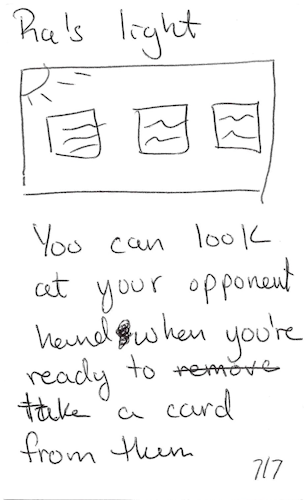 Ra's light
You can look
at your opponent
hand when you're
ready to remove
take a card
from them
7/7